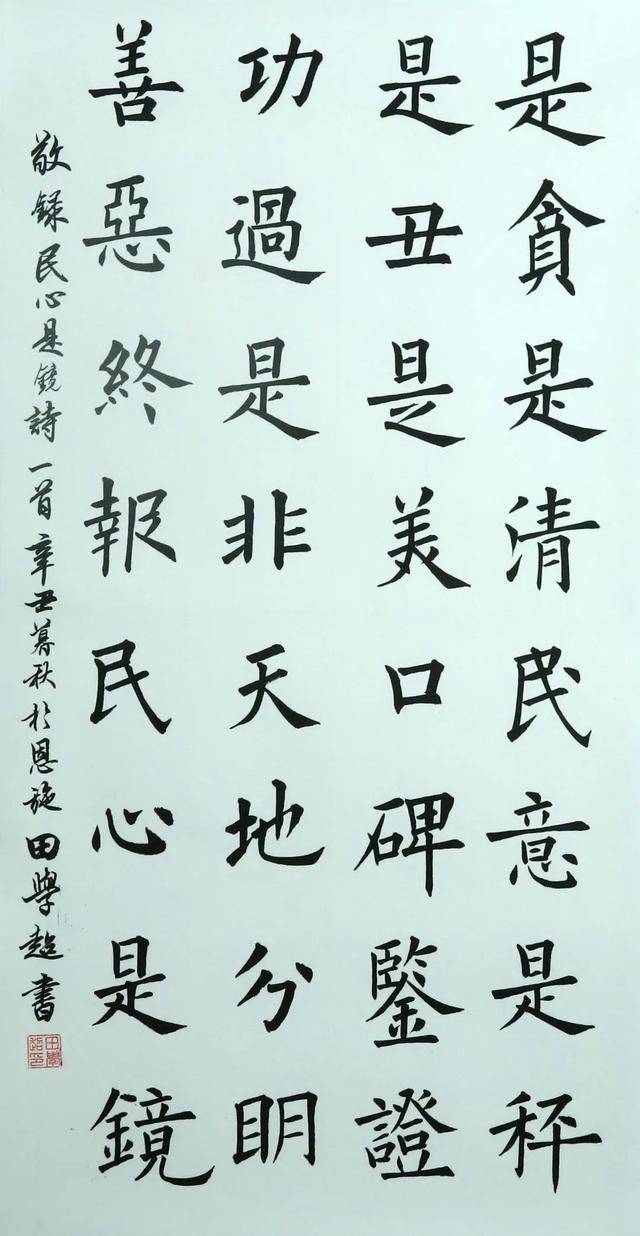 是貪是清民意是秤
是丑是美口碑鑒證
功過是非天地分明
善惡終報民心是鏡
敬録民心是鏡詩一首辛丑暮秋於恩施田學超書